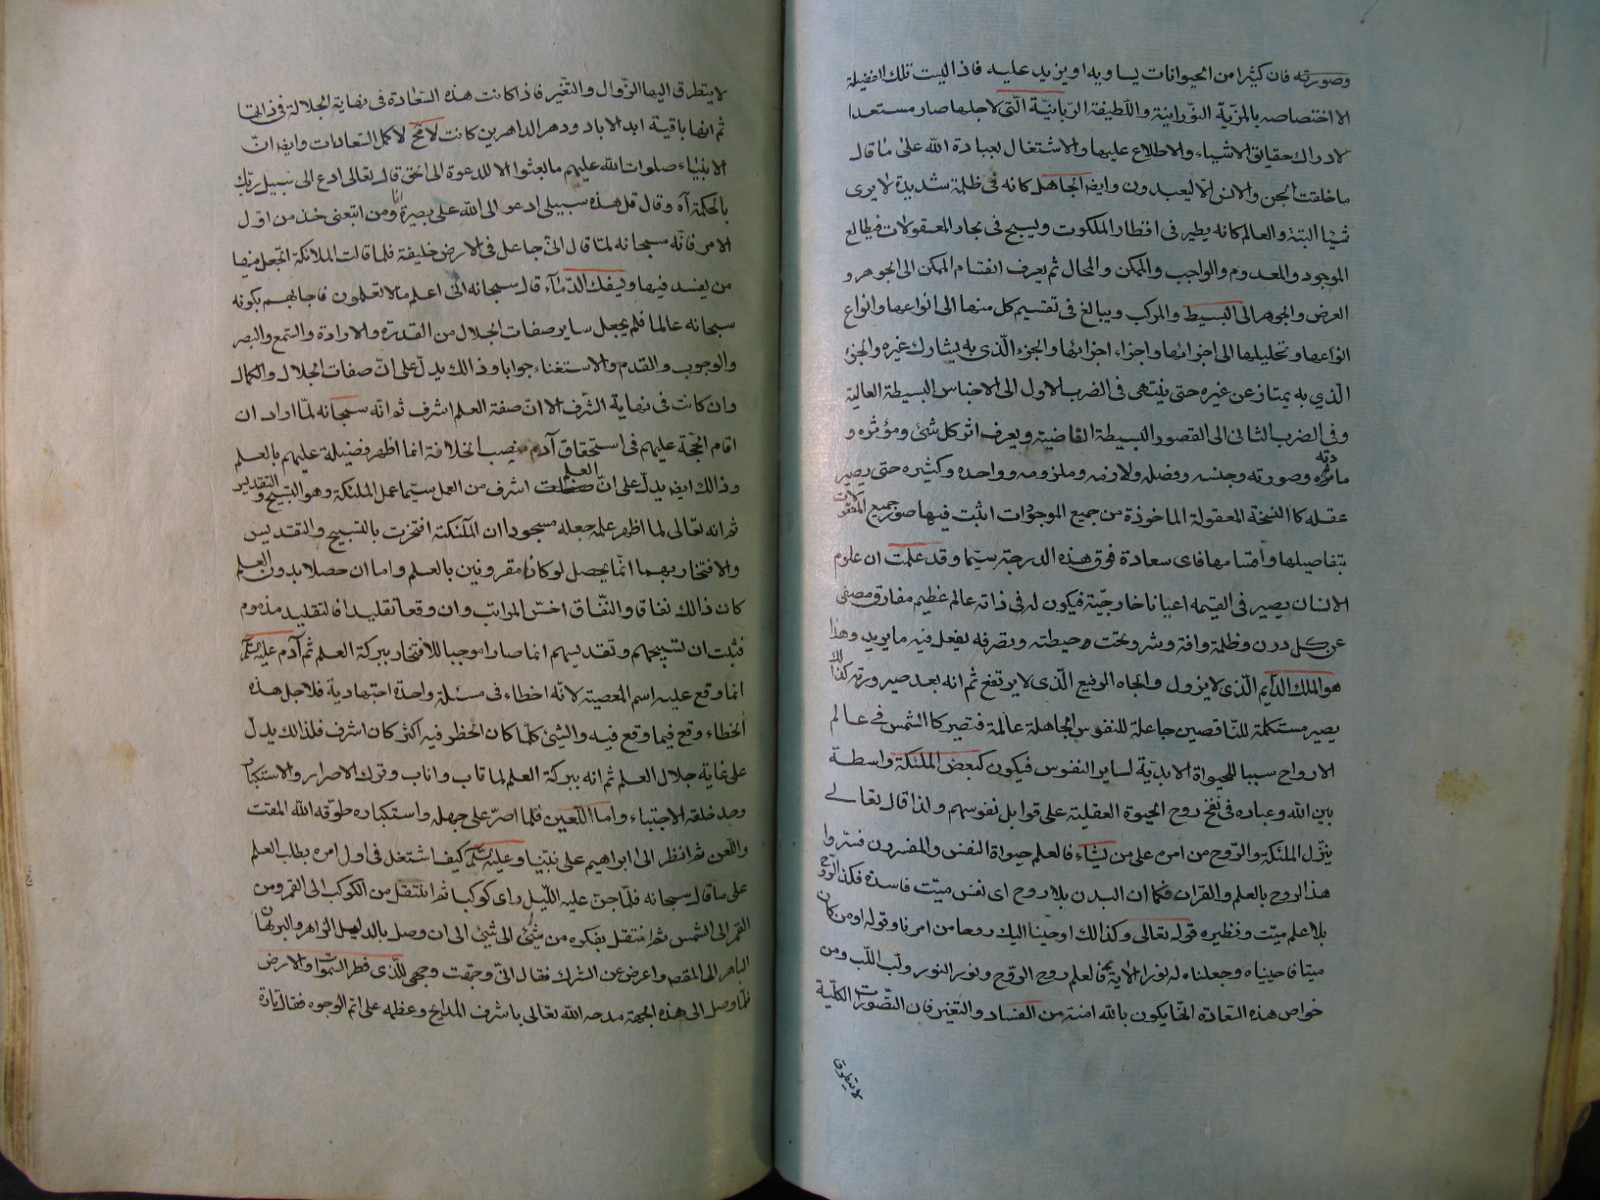 وصورته فان كثيرا من الحيوانات يساويه اويزيد عليه فاذا ليست تلك الفضيلة
الا اختصاصه بالمزية النورانية واللطيفة الربانية التى لاجلها صار مستعدا
لادراك حقايق الاشياء والاطلاع عليها والاشتغال بعبادة الله على ما قال
ما خلقت الجن والانس الا ليعبدون وايضا الجاهل كانه فى ظلمة شديدة لا يرى
شيئا البتة والعالم كانه يطير فى اقطار الملكوت ويسبح فى بحار المعقولات فيطالع
الموجود والمعدوم والواجب والممكن والمحال ثم يعرف انقسام الممكن الى الجوهر و
العرض والجوهر الى البسيط والمركب ويبالغ فى تقسيم كل منها الى انواعها وانواع
انواعها وتحليلها الى اجزائها واجزاء اجزائها والجزء الذى به يشارك غيره والجزء
الذي به يمتاز عن غيره حتى ينتهى فى الضرب الاول الى الاجناس البسيطة العالية
وفى الضرب الثانى الى الفصور البسيطة القاضية ويعرف اثر كل شئ ومؤثره و
مادته وصورته وجنسه وفصله ولازمه وملزومه وواحده وكثيره حتى يصير
عقله كالنسخة المعقولة الماخوذة من جميع الموجودات اثبت فيها صور جميع المعقولات
بتفاصيلها واقسامها فاى سعادة فوق هذه الدرجة سيما وقد علمت ان علوم
الانسان يصير فى القيمه اعيانا خارجية فيكون له فى ذاته عالم عظيم مفارق مصفى
عن كل درن وظلمة وافة وشر وتحت حيطته وتصرفه يفعل فيه ما يريد وهذا
هو الملك الدايم الذى لا يزول والجاه الرفيع الذى لا يرتفع ثم انه بعد صيرورته كذالك
يصير مستكملة للناقصين جاعلة للنفوس الجاهلة عالمة فتصير كالشمس فى عالم
الارواح سببا للحيواة الابدية لساير النفوس فيكون كبعض الملئكة واسطة
بين الله وعباده فى نفخ روح الحيوة العقلية على قوابل نفوسهم ولذا قال تعالى
ينزل الملئكة والروح من امره على من يشاء فالعلم حيواة النفس والمفسرون فسروا
هذ الروح بالعلم والقران فكما ان البدن بلا روح اى نفس ميت فاسدة فكذا الروح
بلا علم ميت ونظيره قوله تعالى وكذالك اوحينا اليك روحا من امرنا وقوله اومن كان
ميتا فاحييناه وجعلناه له نورا الاية فالعلم روح الروح ونور النور ولب اللب ومن
خواص هذه السعادة انها يكون بالله امنة من الفساد والتغير فان التصورات الكلية
لا يتطرق
لا يتطرق اليها الزوال والتغير فاذا كانت هذه السعادة فى نهاية الجلالة فى ذاتها
ثم انها باقية ابد الاباد ودهر الداهرين كانت لا مح لا كمل السعادات وايضا ان
الانبياء صلوات الله عليهم ما بعثوا الا للدعوة الى الحق قال تعالى ادع الى سبيل ربك
بالحكمة آه وقال قل هذه سبيلى ادعو الى الله على بصيرة انا ومن اتبعنى خذ من اول
الامر فانه سبحانه لما قال انى جاعل فى الارض خليفة فلما قالت الملائكة اتجعل فيها
من يفسد فيها ويسفك الدماء قال سبحانه انى اعلم ما لا تعلمون فاجابهم بكونه
سبحانه عالما فلم يجعل ساير صفات الجلال من القدرة والارادة والسمع والبصر
والوجوب والقدم والاستغناء جوابا وذالك يدل على ان صفات الجلال والكمال
وان كانت فى نهاية الشرف الا ان صفة العلم اشرف ثم انه سبحانه لما اراد ان
اقام الحجة عليهم فى استحقاق آدم منصب الخلافة انما اظهر فضيلة عليهم بالعلم
وذالك ايضا يدل على ان العلم اشرف من العمل سيما عمل الملئكة وهو التسبيح والتقديس
ثم انه تعالى لما اظهر علمه جعله مسجودا ان الملئكة افتخرت بالتسبيح والتقديس
والافتخار بهما انما يحصل لو كانا مقرونين بالعلم واما ان حصلا بدون العلم
كان ذالك نفاق والنفاق اخس المراتب وان وقعا تقليدا فالتقليد مذموم
فثبت ان تسبيحهم وتقديسهم انما صارا موجبا للافتخار ببركة العلم ثم آدم عليه السلم
انما وقع عليه اسم المعصية لانه اخطاء فى مسئلة واحدة اجتهادية فلاجل هذه
الخطاء وقع فيما وقع فيه والشئ كلما كان الخطر فيه اكثر كان اشرف فلذالك يدل
على غاية جلال العلم ثم انه ببركة العلم لما تاب واناب وترك الاصرار والاستكبار
وجد خلعة الاجتباء واما اللعين فلما اصر على جهله واستكباره طوقه الله المقت
واللعن ثم انظر الى ابراهيم على نبينا وعليه السلم كيف اشتغل فى اول امره بطلب العلم
على ما قال سبحانه فلما جن عليه الليل راى كوكبا ثم انتقل من الكوكب الى القمر ومن
القمر الى الشمس ثم انتقل بفكره من شئ الى شئ الى ان وصل بالدليل الزاهر والبرهان
الباهر الى المقصد واعرض عن الشرك فقال انى وجهت وجهى للذى فطر السموات والارض
فلما وصل الى هذه الجهة مدحه الله تعالى باشرف المدايح وعظمه على اتم الوجوه فقال تارة